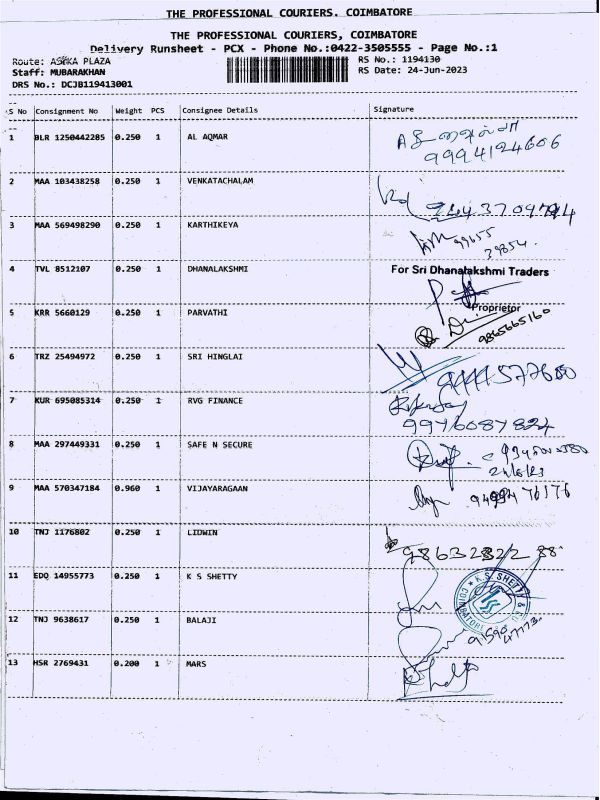 THE PROFESSIONAL COURIERS. COIMBATORE
THE PROFESSIONAL COURIERS, COIMBATORE
Delivery Runsheet - PCX - Phone No.:0422-3505555 - Page No.:1
Route: ASHKA PLAZA RS No.: 1194130
Staff: MUBARAKHAN RS Date: 24-Jun-2023
DRS No.: DCJB119413001
S No Consignment No Weight PCS Consignee Details Signature
1 BLR 1250442285 0.250 1 AL AQMAR
9994124606
2 MAA 103438258 0.250 1 VENKATACHALAM
3 MAA 569498290 0.250 1 KARTHIKEYA
99655
39854.
4 TVL 8512107 0.250 1 DHANALAKSHMI For Sri Dhanalakshmi Traders
Proprietor
5 KRR 5660129 0.250 1 PARVATHI 9865665160
6 TRZ 25494972 0.250 1 SRI HINGLAI
7 KUR 695085314 0.250 1 RVG FINANCE
9976087824
8 MAA 297449331 0.250 1 SAFE N SECURE
24/6/23
9 MAA 570347184 0.960 1 VIJAYARAGAAN
10 TNJ 1176802 0.250 1 LIDWIN
11 EDQ 14955773 0.250 1 K S SHETTY K.S. SHETTY & CO COIMBATORE
12 TNJ 9638617 0.250 1 BALAJI
13 HSR 2769431 0.200 1 MARS